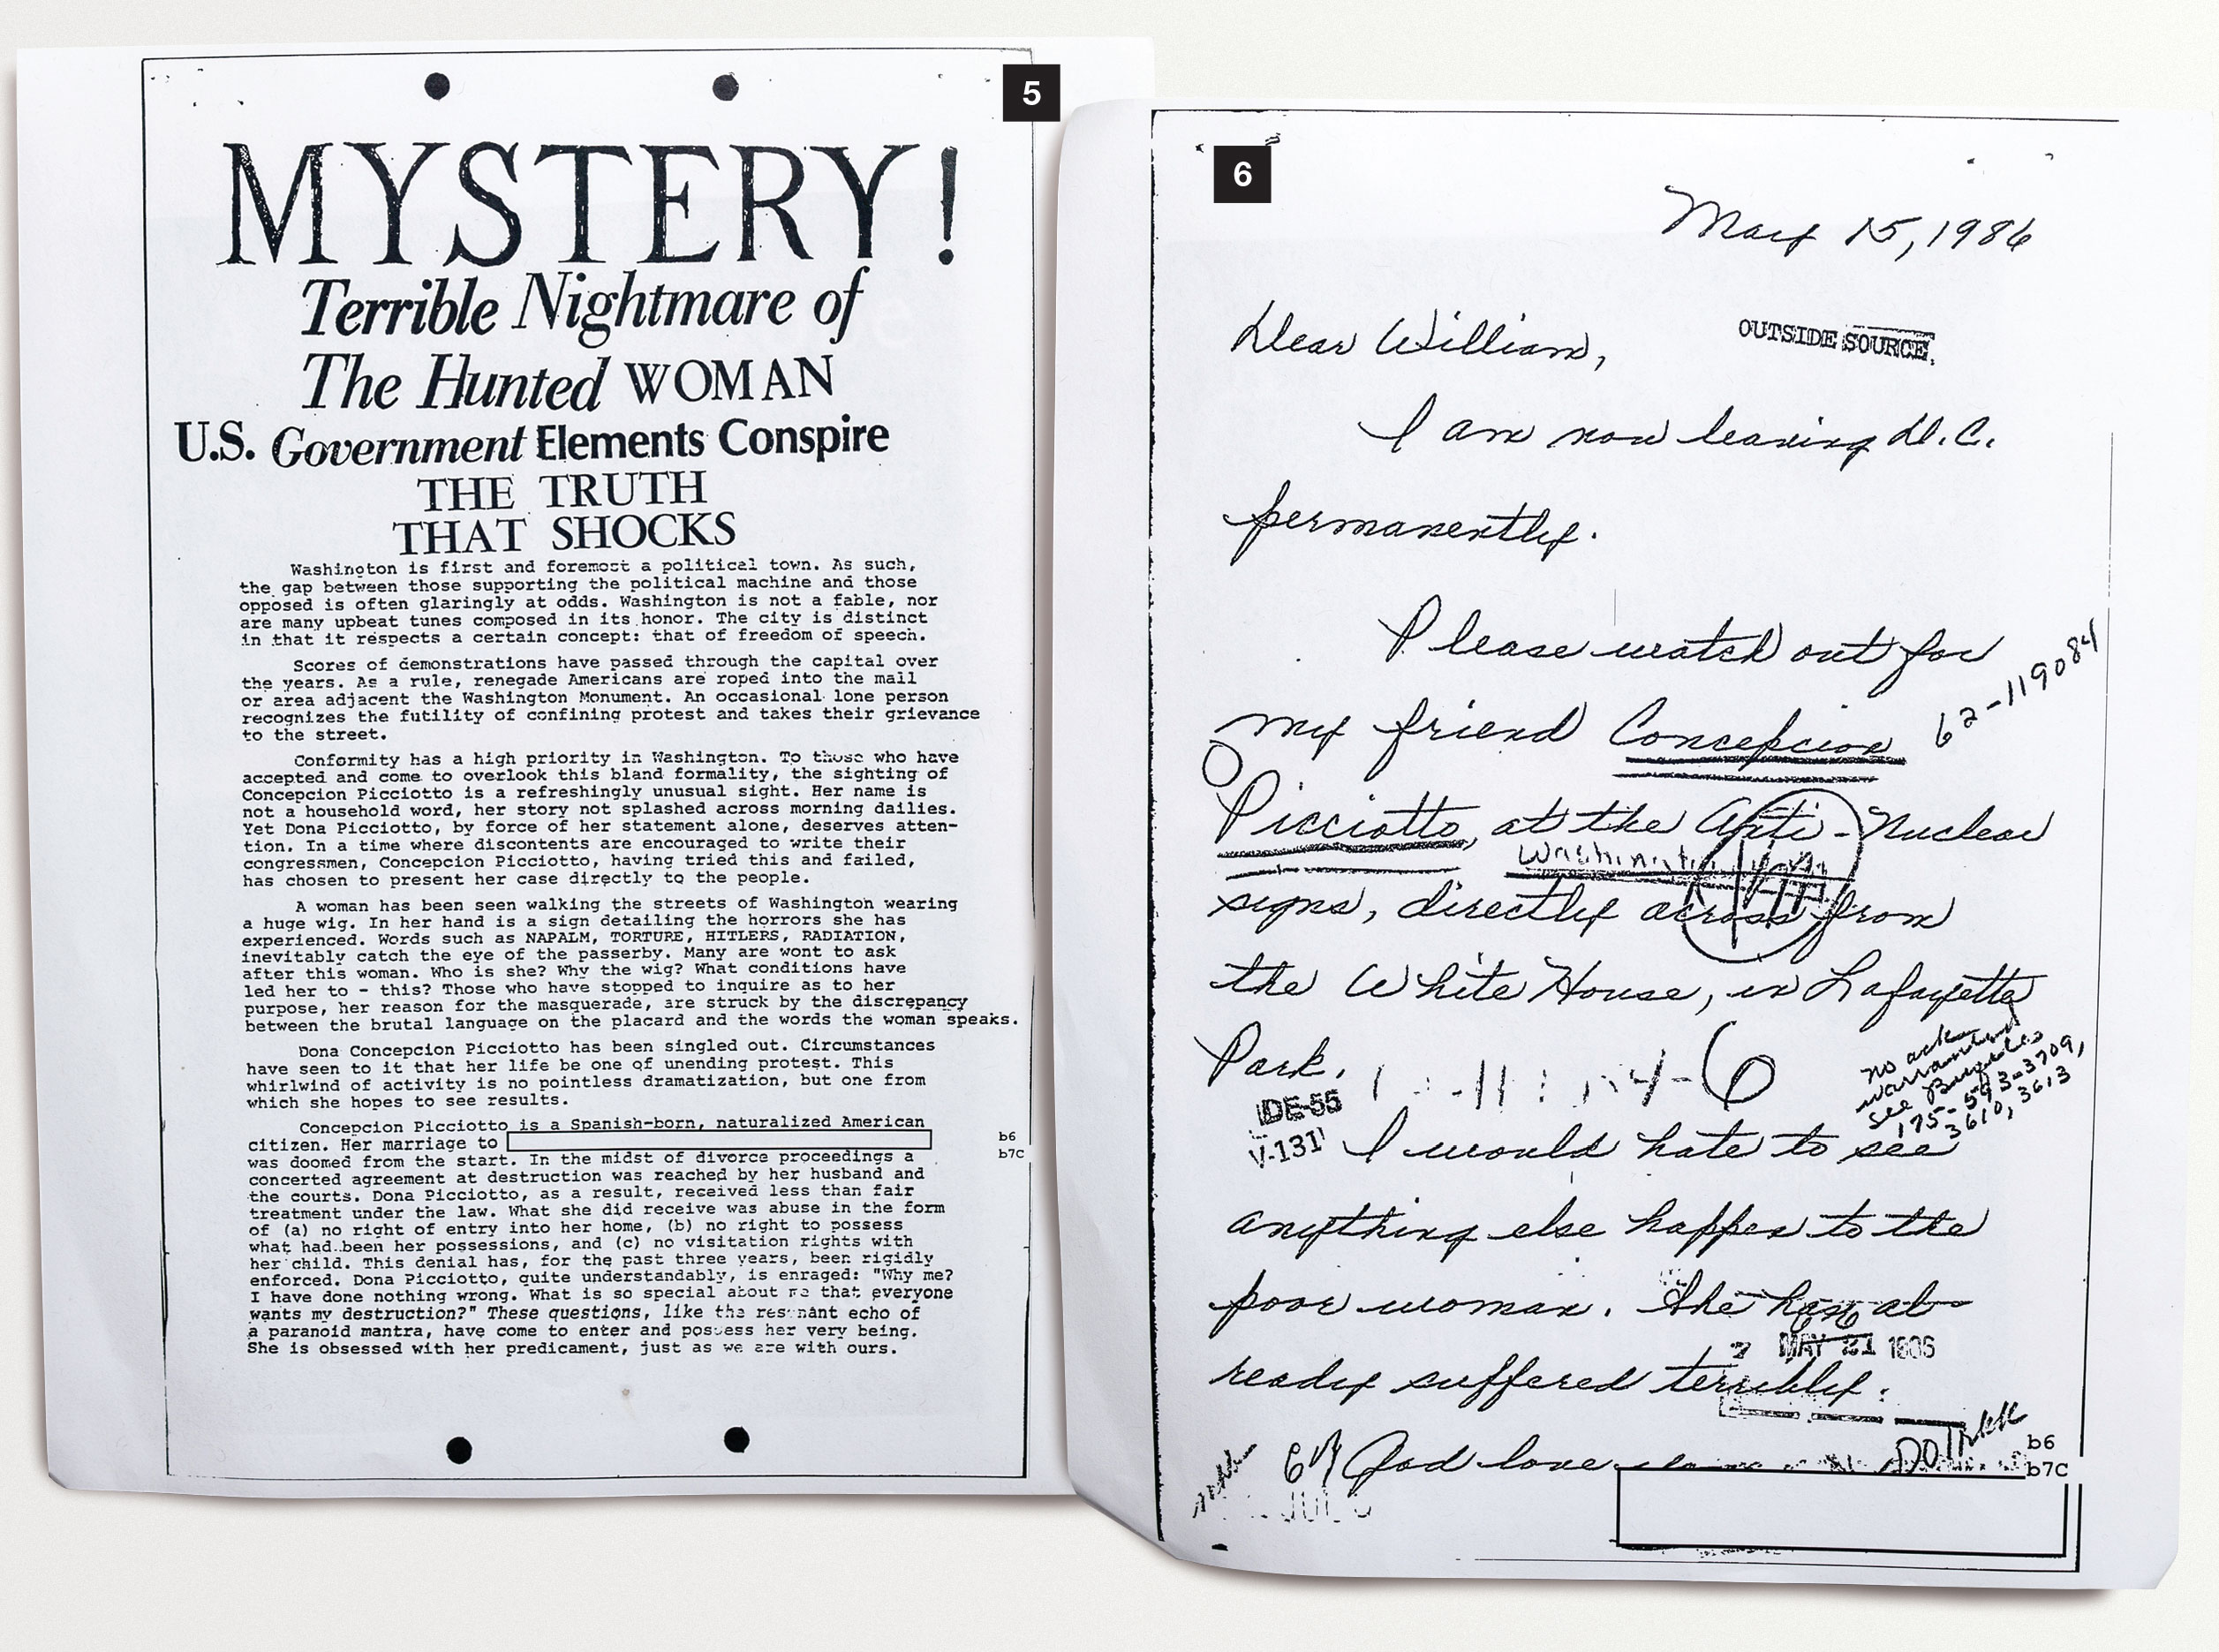 5
MYSTERY!
Terrible Nightmare of
The Hunted WOMAN
U.S. Government Elements Conspire
THE TRUTH
THAT SHOCKS
Washington is first and foremost a political town. As such,
the gap between those supporting the political machine and those
opposed is often glaringly at odds. Washington is not a fable, nor
are many upbeat tunes composed in its honor. The city is distinct
in that it respects a certain concept: that of freedom of speech.
Scores of demonstrations have passed through the capital over
the years. As a rule, renegade Americans are roped into the mall
or area adjacent the Washington Monument. An occasional lone person
recognizes the futility of confining protest and takes their grievance
to the street.
Conformity has a high priority in Washington. To those who have
accepted and come to overlook this bland formality, the sighting of
Concepcion Picciotto is a refreshingly unusual sight. Her name is
not a household word, her story not splashed across morning dailies.
Yet Dona Picciotto, by force of her statement alone, deserves atten-
tion. In a time where discontents are encouraged to write their
congressmen, Concepcion Picciotto, having tried this and failed,
has chosen to present her case directly to the people.
A woman has been seen walking the streets of Washington wearing
a huge wig. In her hand is a sign detailing the horrors she has
experienced. Words such as NAPALM, TORTURE, HITLERS, RADIATION,
inevitably catch the eye of the passerby. Many are wont to ask
after this woman. Who is she? Why the wig? What conditions have
led her to - this? Those who have stopped to inquire as to her
purpose, her reason for the masquerade, are struck by the discrepancy
between the brutal language on the placard and the words the woman speaks.
Dona Concepcion Picciotto has been singled out. Circumstances
have seen to it that her life be one of unending protest. This
whirlwind of activity is no pointless dramatization, but one from
which she hopes to see results.
Concepcion Picciotto is a Spanish-born, naturalized American
citizen. Her marriage to
b6
b7C
was doomed from the start. In the midst of divorce proceedings a
concerted agreement at destruction was reached by her husband and
the courts. Dona Picciotto, as a result, received less than fair
treatment under the law. What she did receive was abuse in the form
of (a) no right of entry into her home, (b) no right to possess
what had been her possessions, and (c) no visitation rights with
her child. This denial has, for the past three years, been rigidly
enforced. Dona Picciotto, quite understandably, is enraged: "Why me?
I have done nothing wrong. What is so special about me that everyone
wants my destruction?" These questions, like the resonant echo of
a paranoid mantra, have come to enter and possess her very being.
She is obsessed with her predicament, just as we are with ours.
6
May 15, 1986
Dear William,
OUTSIDE SOURCE
I am now leaving D.C.
permanently.
Please watch out for
my friend Concepcion
62-119084
Picciotto, at the Anti-Nuclear
Washington
signs, directly across from
the White House, in Lafayette
Park.
6
no ack
warranted
see Bufiles
175-593-3709,
3610, 3613
DE-55
V-131
I would hate to see
anything else happen to the
poor woman. She has al-
MAY 21
ready suffered terribly.
God love
b6
b7C
JUL